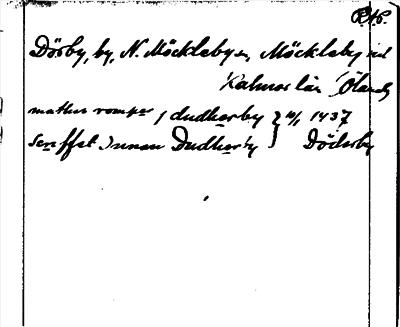 RAP.
Dörby, by, N. Möckleby sn, Möckleby hd
Kalmar län, Öland
mathis romp / dudherby } 10/1 1437
scriffet innan Dudherby } Döderby